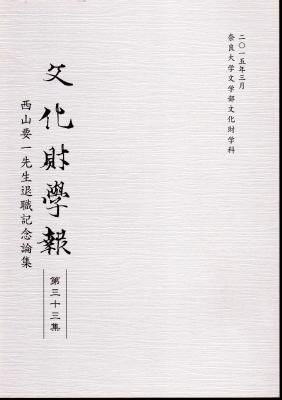 二〇一五年三月
奈良大学文学部文化財学科
文化財學報
第三十三集
西山要一先生退職記念論集